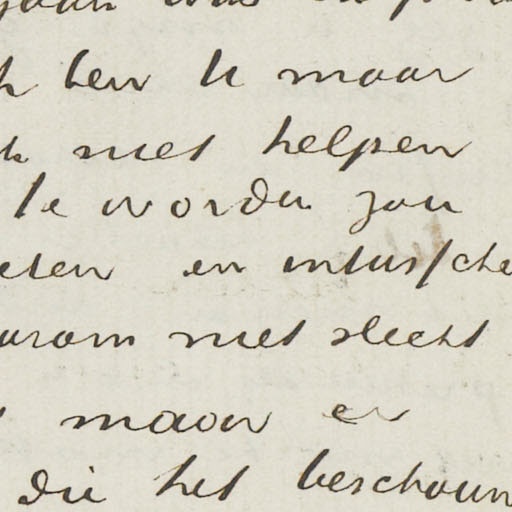 ben U maar
niet helpen
te worden zou
en intussche
niet slecht
maar er
die het beschouw